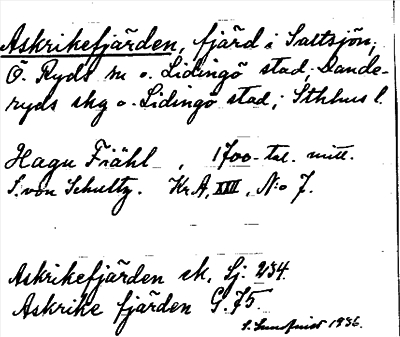 Askrikefjärden, fjärd i Saltsjön,
Ö. Ryds sn o. Lidingö stad, Dande-
ryds skg o. Lidingö stad, Sthlms l.
Hagu Fiähl, 1700-tal. mitt.
S. von Schultz. Kr.A, XXIII, No 7.
Askrikefjärden sk. Sj. 234.
Askrike fjärden G. 75.
1936.